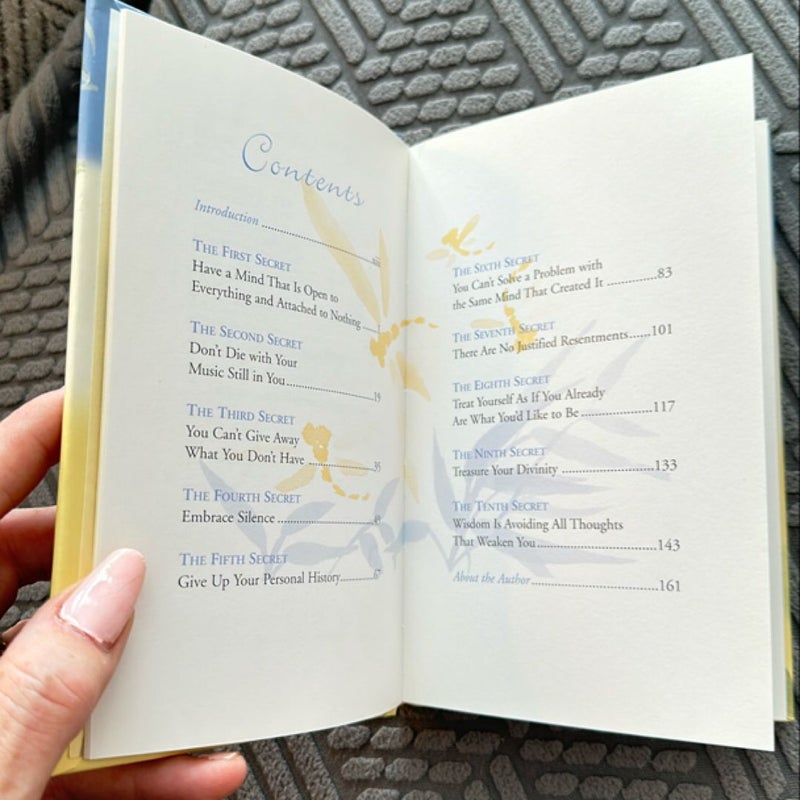 Contents
Introduction
THE FIRST SECRET
Have a Mind That Is Open to
Everything and Attached to Nothing
THE SECOND SECRET
Don't Die with Your
Music Still in You 19
THE THIRD SECRET
You Can't Give Away
What You Don't Have 35
THE FOURTH SECRET
Embrace Silence
THE FIFTH SECRET
Give Up Your Personal History 67
THE SIXTH SECRET
You Can't Solve a Problem with
the Same Mind That Created It 83
THE SEVENTH SECRET
There Are No Justified Resentments 101
THE EIGHTH SECRET
Treat Yourself As If You Already
Are What You'd Like to Be 117
THE NINTH SECRET
Treasure Your Divinity 133
THE TENTH SECRET
Wisdom Is Avoiding All Thoughts
That Weaken You 143
About the Author 161